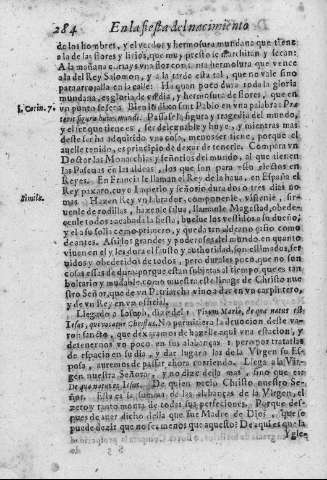 284 En la fiesta del nacimiento
de los hombres, y el verdor y hermosura mundana que tiene
ala de las flores y lirios, que muy presto se marchitan y secan:
A la mañana os arays vna flor con tanta hermosura que vence
a la del Rey Salomon, y a la tarde esta tal, que no vale sino
para arrojalla en la calle: Ha quan poco dura toda la gloria
mundana, es gloria de vn dia, y hermosura de flores, que en
1. Corin. 7. vn punto se seca. Bien lo dixo sant Pablo en vna palabra: Præ-
terit figura huius mundi. Passase la figura y tragedia del mundo,
y el ser que tiene es, ser deleznable y huye, y mientras mas
deste ser ha adquirido vna cosa, menos ser tiene, porque el
auelle tenido, es principio de dexar de tenerle. Compara vn
Doctor las Monarchias y señorios del mundo, al que tienen
las Pascuas en las aldeas, los que son para eso electos en
Reyes. En Francia le llaman el Rey de la haua, en España el
Rey paxaro, cuyo Imperio y señorio dura dos o tres dias no
Simile. mas. Hazen Rey vn labrador, componenle, vistenle, sir-
uenle de rodillas, hazenle salua, llamanle Magestad, todos
le obedecen: acabada la fiesta, buelue los vestidos a su dueño,
y el a su solicomo primero, y queda tan aldeano grisso como
de antes. Assi los grandes y poderosos del mundo, en quanto
viuen en el y les dura el fausto y authoridad, son estimados, ser
uidos y obedecidos de todos, pero dura les poco, que no son
cosas essas de dura, porque estan subjetas al tiempo, que es tan
boltario y mudable como muestra este linage de Christo nues-
tro Señor, que de vn Patriarcha vino a dar en vn carpintero,
y de vn Rey en vn official.
Llegando a Ioseph, dize del: Virum Mariæ, de qua natus est
Iesus, qui vocatur Christus. No permitiera la deuocion deste va-
ron sancto, que dexaramos de hazelle aqui vna estacion, y
detenernos vn poco en sus alabanças: pero por tratallas
de espacio en su dia, y dar lugar a las de la Virgen su Es-
posa, auremos de passar ahora corriendo. Llega a la Vir-
gen nuestra Señora, y no dize dello mas, sino que es:
De qua natus est Iesus. De quien nacio Christo nuestro Se-
ñor. Esta es la summa de las alabanças de la Virgen, el
zero y tanto monta de todas sus perfeciones. Porque des-
pues de auer dicho della que fue Madre de Dios, que se
puede dezir que no sea menos que aquesto? De aqui es que la
Igle-